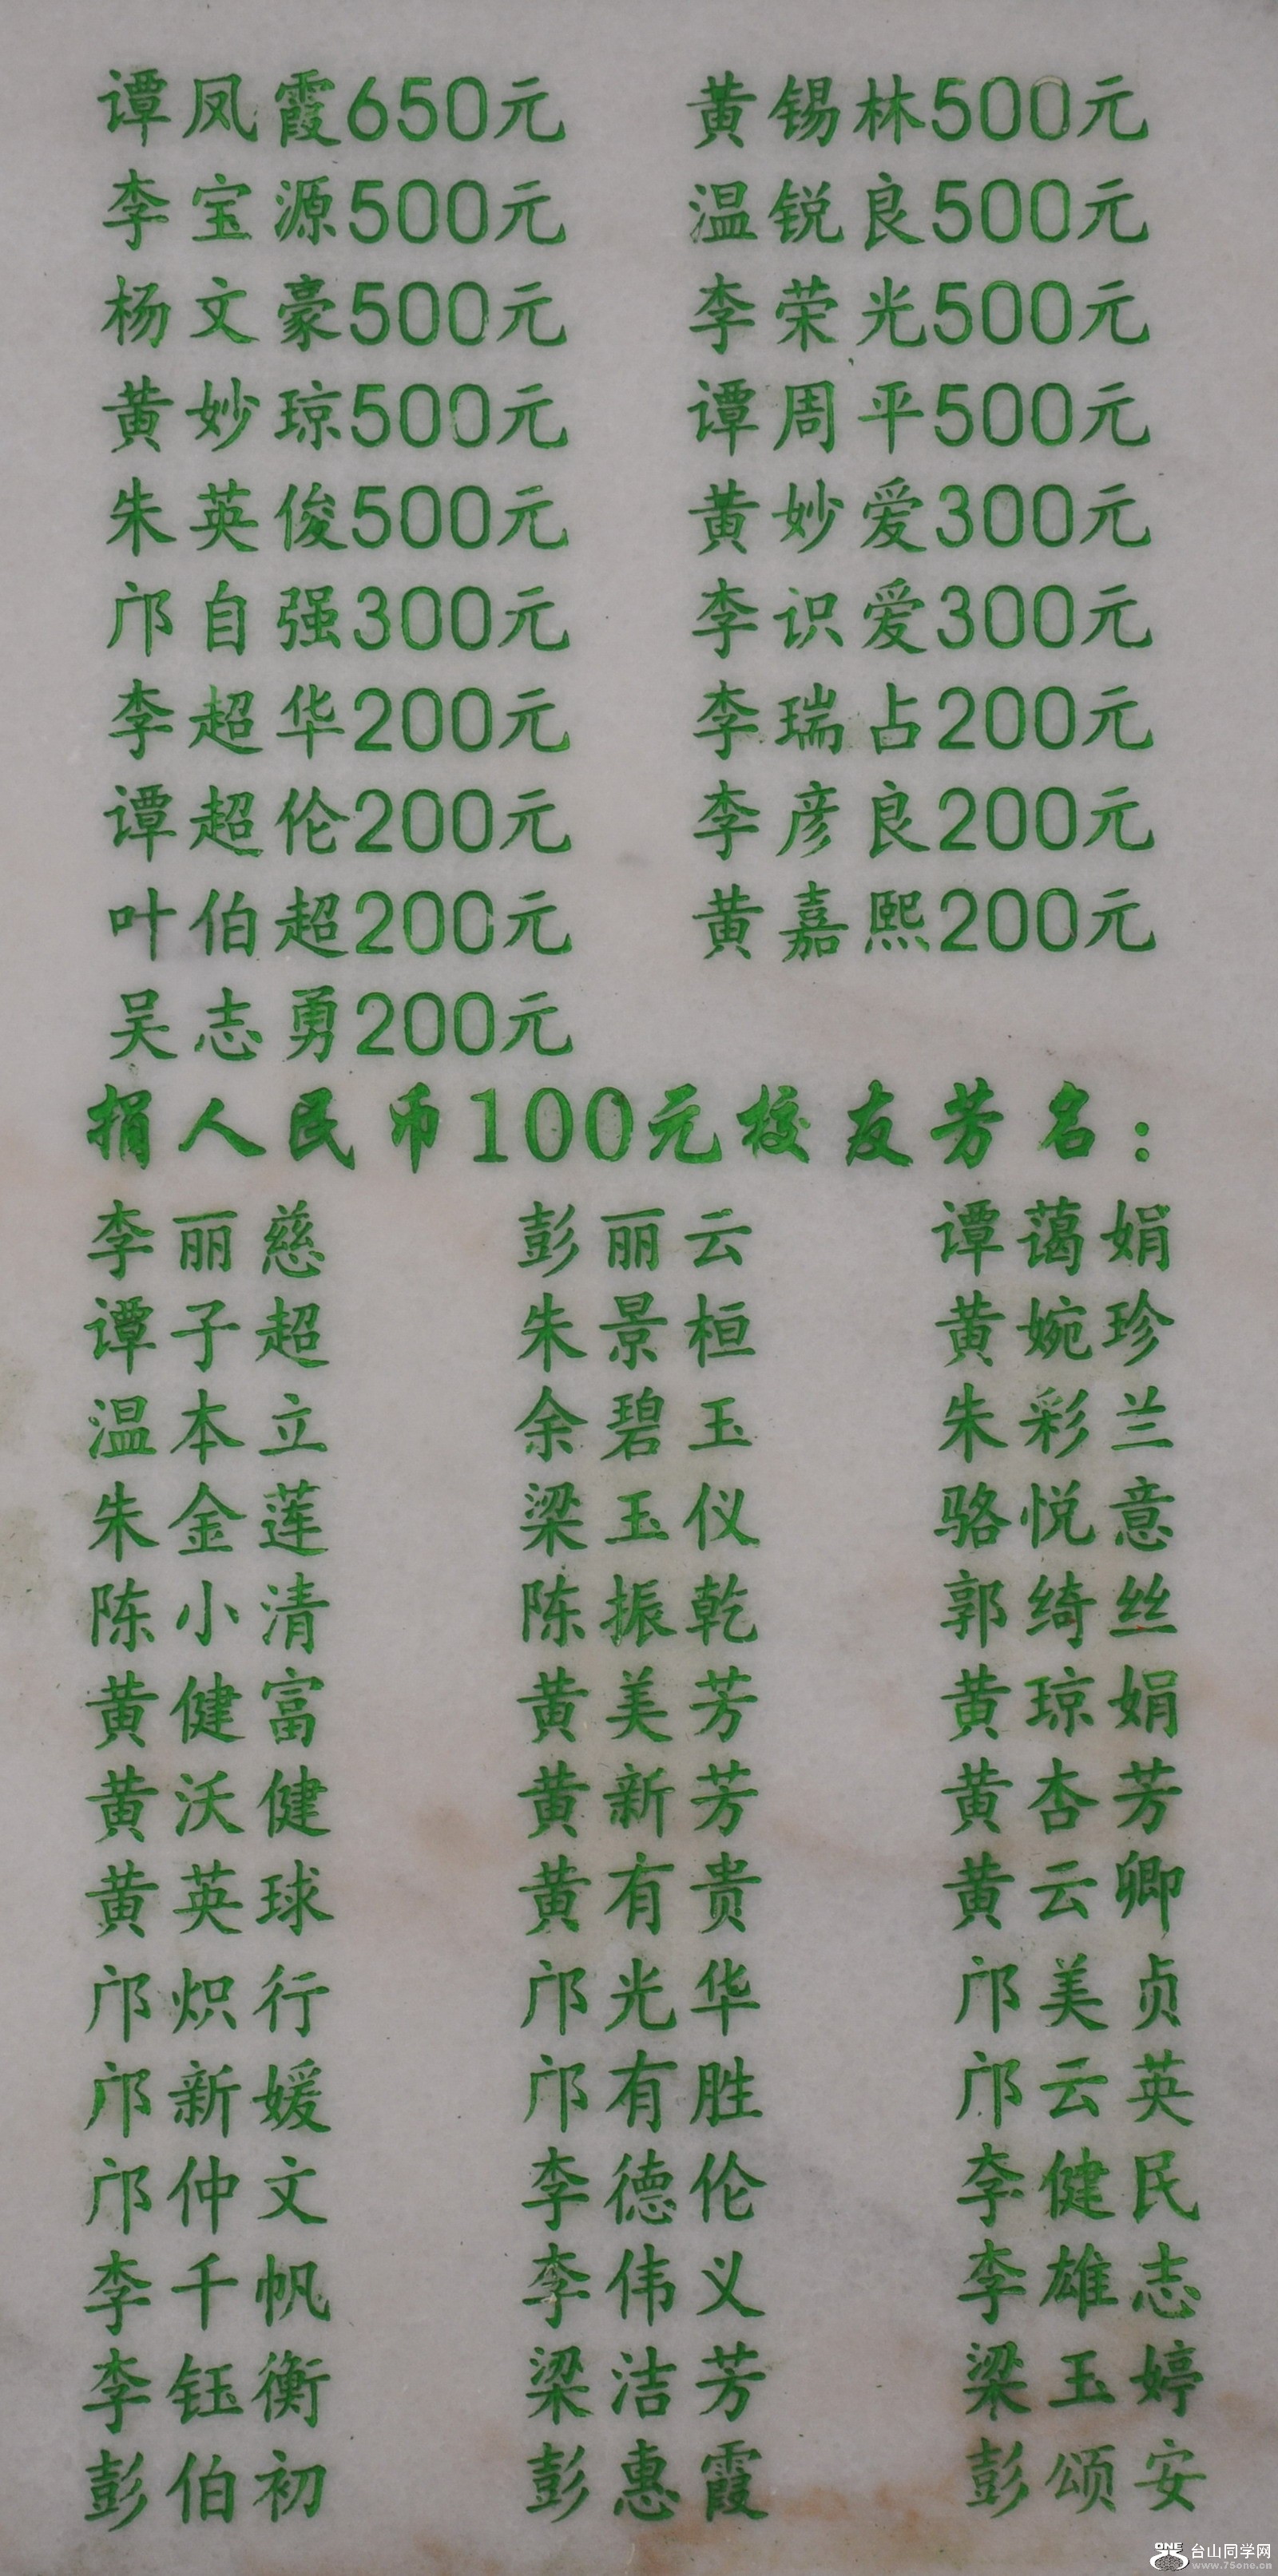 谭凤霞650元 黄锡林500元
李宝源500元 温锐良500元
杨文豪500元 李荣光500元
黄妙琼500元 谭周平500元
朱英俊500元 黄妙爱300元
邝自强300元 李识爱300元
李超华200元 李瑞占200元
谭超伦200元 李彦良200元
叶伯超200元 黄嘉熙200元
吴志勇200元
捐人民币100元校友芳名：
李丽慈 彭丽云 谭蔼娟
谭子超 朱景桓 黄婉珍
温本立 余碧玉 朱彩兰
朱金莲 梁玉仪 骆悦意
陈小清 陈振乾 郭绮丝
黄健富 黄美芳 黄琼娟
黄沃健 黄新芳 黄杏芳
黄英球 黄有贵 黄云卿
邝炽行 邝光华 邝美贞
邝新媛 邝有胜 邝云英
邝仲文 李德伦 李健民
李千帆 李伟义 李雄志
李钰衡 梁洁芳 梁玉婷
彭伯初 彭惠霞 彭颂安
ONE 台山同学网
www.75one.cn